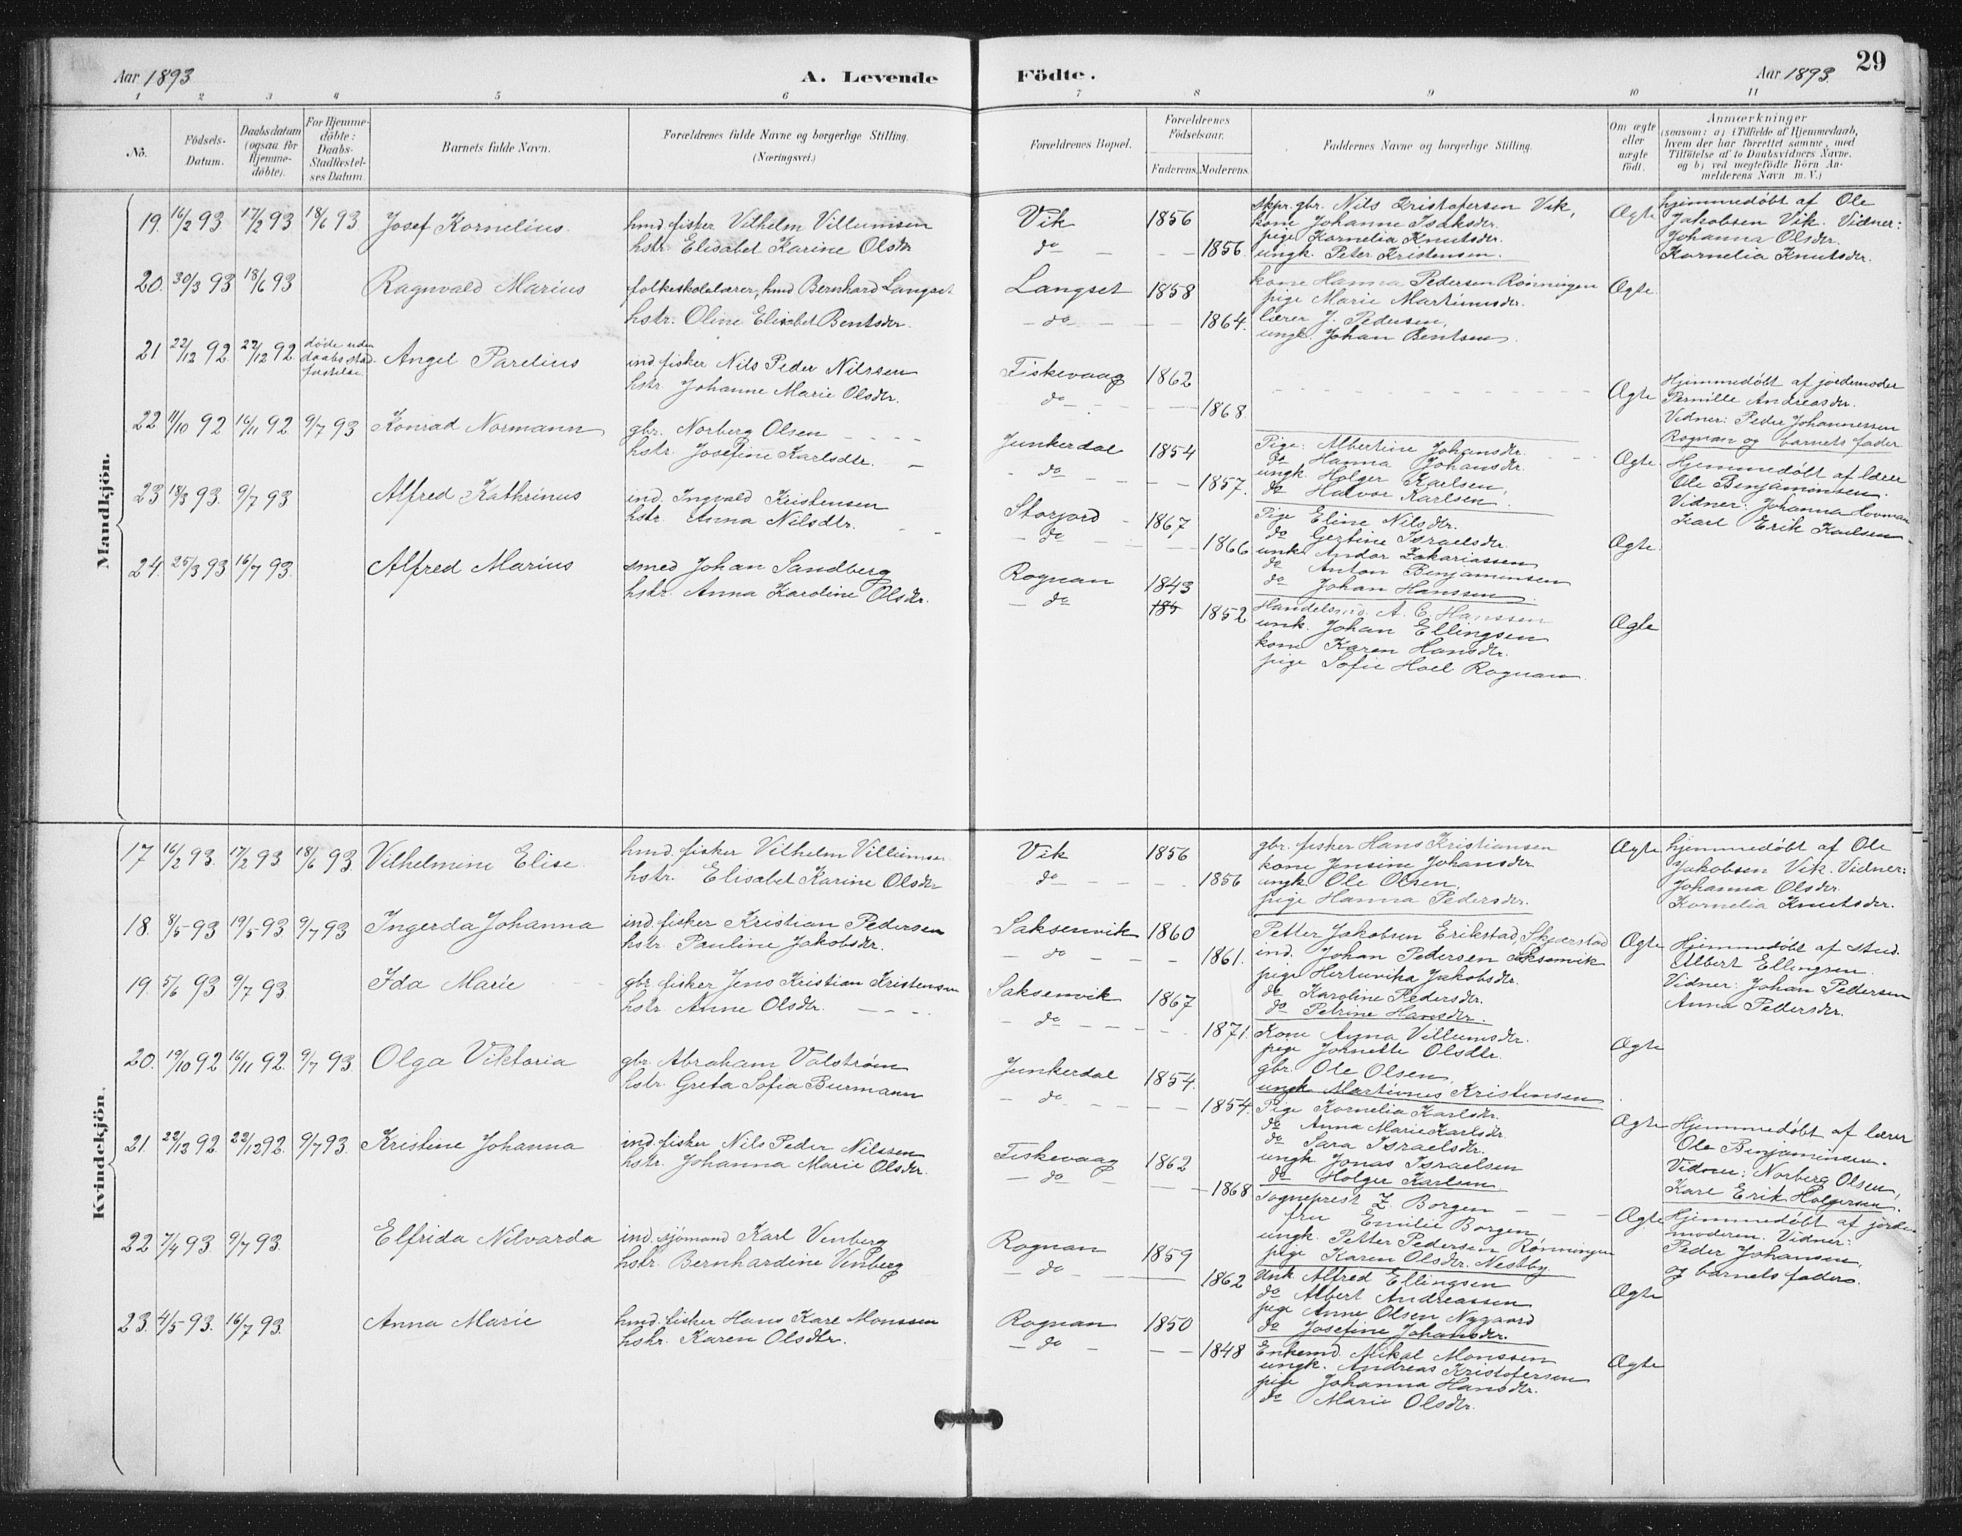 Aar 1893
A. Levende Födte.
Aar 1893.
29
1 2 3 4 5 6 7 8 9 10 11
No.
Födsels-
Datum.
Daabsdatum
(ogsaa for
Hjemme-
døbte).
For Hjemme-
døbte:
Daabs-
Stadfæstel-
ses Datum.
Barnets fulde Navn.
Forældrenes fulde Navne og borgerlige Stilling.
(Næringsvei.)
Forældrenes Bopæl.
Forældrenes
Födselsaar.
Faderens. Moderens.
Faddernes Navne og borgerlige Stilling.
Om ægte
eller
uægte
født.
Anmærkninger
(saasom: a) i Tilfælde af Hjemmedaab,
hvem der har forrettet samme, med
Tilföielse af to Daabsvidners Navne.
og b) ved uægtefødte Börn An-
melderens Navn m. V.)
Mandkjön.
19. 16/2 93 17/2 93 18/6 93 Josef Kornelius.
hmd. fisker Vilhelm Villumsen
hstr. Elisabet Karine Olsdr
Vik 1856
do 1856.
skpr. gbr. Nils Kristofersen Vik,
kone Johanne Isaksdr.
pige Kornelia Knutsdr.
ungk. Peter Kristensen.
Ægte
hjemmedøbt af Ole
Jakobsen Vik. Vidner:
Johanna Olsdr.
Kornelia Knutsdr.
20. 30/3 93 18/6 93 Ragnvald Marius
folkeskolelærer, hmd Bernhard Langset
hstr. Oline Elisabet Bentsdr.
Langset 1858
do 1864.
kone Hanna Pedersen Rønningen
pige Marie Martinusdr.
lærer J. Pedersen,
ungk. Johan Bentsen
Ægte.
21 22/12 92 22/12 92 døde uden
daabs stad
fæstelse
Angel Parelius
ind. fisker Nils Peder Nilssen
hstr. Johanne Marie Olsdr.
Fiskevaag 1862
do 1868.
Ægte
Hjemmedøbt af jordemoder
Pernille Andreasdr.
Vidner: Peder Johannessen
Rognan og barnets fader
22 11/10 92 16/11 92 9/7 93 Konrad Normann
gbr. Norberg Olsen
hstr. Josefine Karlsdtr.
Junkerdal 1854
do 1857.
Pige: Albertine Johansdr.
do Hanna Johansdr.
ungk. Holger Karlsen,
do Halvor Karlsen.
Ægte.
Hjemmedøbt af lærer
Ole Benjaminsen.
Vidner: Johanna
Karl Erik Karlsen
23 18/3 93. 9/7 93 Alfred Kathrinus
ind. Ingvald Kristensen
hstr. Anna Nilsdtr.
Storjord 1867
do 1866
Pige Eline Nilsdr.
do Gertine Israelsdr.
unk. Andor Zakariassen
do Anton Benjaminsen
do Johan Hanssen.
Ægte.
24. 25/3 93 16/7 93. Alfred Marius
smed Johan Sandberg
hstr. Anna Karoline Olsdr.
Rognan 1843
do 185 1852
Handelsmd. A. C. Hanssen
unk. Johan Ellingsen
kone Karen Hansdr.
pige Sofie Hoel Rognan.
Ægte
Kvindekjön.
17 16/2 93. 17/2 93 18/6 93. Vilhelmine Elise.
hmd. fisker Vilhelm Villumsen
hstr. Elisabet Karine Olsdr
Vik 1856
do 1856
gbr. fisker Hans Kristiansen
kone Jensine Johansdr
ungk Ole Olsen.
pige Hanna Pedersdr.
Ægte
hjemmedøbt af Ole
Jakobsen Vik. Vidner:
Johanna Olsdr
Kornelia Knutsdr.
18. 8/5 93 19/5 93 9/7 93 Ingerda Johanna
ind. fisker Kristian Pedersen
hstr. Pauline Jakobsdr.
Saksenvik 1860
do 1861.
Petter Jakobsen Erikstad, Skjerstad
ind. Johan Pedersen Saksenvik
pige Hertuvika Jakobsdr.
do Karoline Pedersdr.
do Petrine Hansdr.
Ægte
Hjemmedøbt af stud.
Albert Ellingsen.
Vidner: Johan Pedersen
Anna Pedersdr.
19. 5/6 93 9/7 93. Ida Marie
gbr. fisker Jens Kristian Kristensen
hstr. Anne Olsdr.
Saksenvik 1867
do 1871.
Kone Anna Villumsdr.
pige Jornette Olsdtr.
gbr. Ole Olsen,
ungk. Martinus Kristensen
Ægte
20. 19/10 92 16/11 92. 9/7 93. Olga Viktoria
gbr. Abraham Valstrøm
hstr. Greta Sofia Burmann
Junkerdal 1854.
do 1854.
Pige Kornelia Karlsdr.
do Anna Marie Karlsdr.
do Sara Israelsdr.
ungk. Jonas Israelsen
do Holger Karlsen
Ægte
Hjemmedøbt af lærer
Ole Benjaminsen.
Vidner: Norberg Olsen,
Karl Erik Holgersen.
21 22/12 92. 22/12 92. 9/7 93. Kristine Johanna
ind. fisker Nils Peder Nilssen
hstr. Johanna Marie Olsdr.
Fiskevaag 1862
do 1868
Sogneprest Z. Borgen
fru Emilie Borgen
ungk. Petter Pedersen Rønningen
pige Karen Olsdr. Nestby
Ægte
Hjemmedøbt af jorde-
moderen. Vidner:
Peder Johansen,
og barnets fader.
22 7/4 93. 9/7 93. Elfrida Nilvarda
ind. sjømand Karl Venberg
hstr. Bernhardine Venberg
Rognan 1859
do 1862
Unk Alfred Ellingsen
do Albert Andreassen
pige Anne Olsen Nygaard
do Josefine Johansdr.
Ægte
23. 4/5 93. 16/7 93. Anna Marie
hmd. fisker Hans Karl Monssen
hstr. Karen Olsdtr.
Rognan 1850
do 1848
Enkemd. Mikal Monssen
ungk. Andreas Kristofersen
pige Johanna Hansdr.
do Marie Olsdr.
Ægte